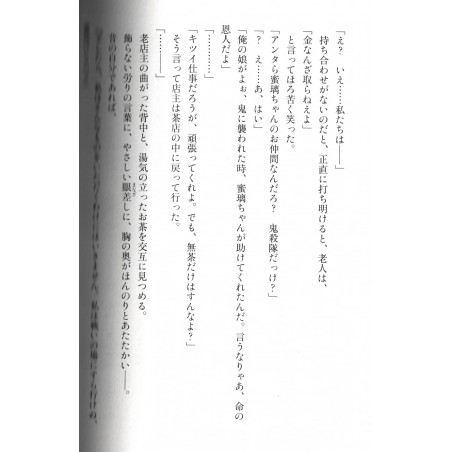 「え？　いえ……私たちは――」
持ち合わせがないのだと、正直に打ち明けると、老人は、
「金なんざ取らねえよ」
と言ってほろ苦く笑った。
「アンタら蜜璃ちゃんのお仲間なんだろ？　鬼殺隊だっけ？」
「？　え……あ、はい」
「俺の娘がよぉ、鬼に襲われた時、蜜璃ちゃんが助けてくれたんだ。言うなりゃあ、命の
恩人だよ」
「…………」
「キツイ仕事だろうが、頑張ってくれよ。でも、無茶だけはすんなよ？」
そう言って店主は茶店の中に戻って行った。
「…………」
老店主の曲がった背中と、湯気の立ったお茶を交互に見つめる。
飾らない労りの言葉に、やさしい眼差しに、胸の奥がほんのりとあたたかい――。
昔の自分であれば、
にはいきません。私は戦いの場にすら行けぬ、